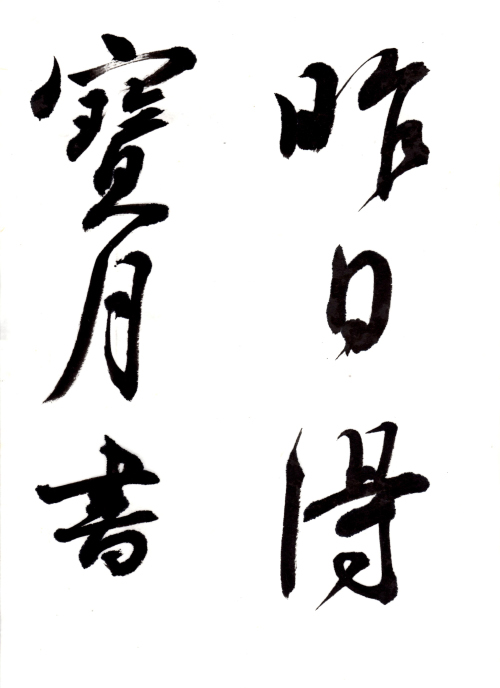 昨日得
寶月書